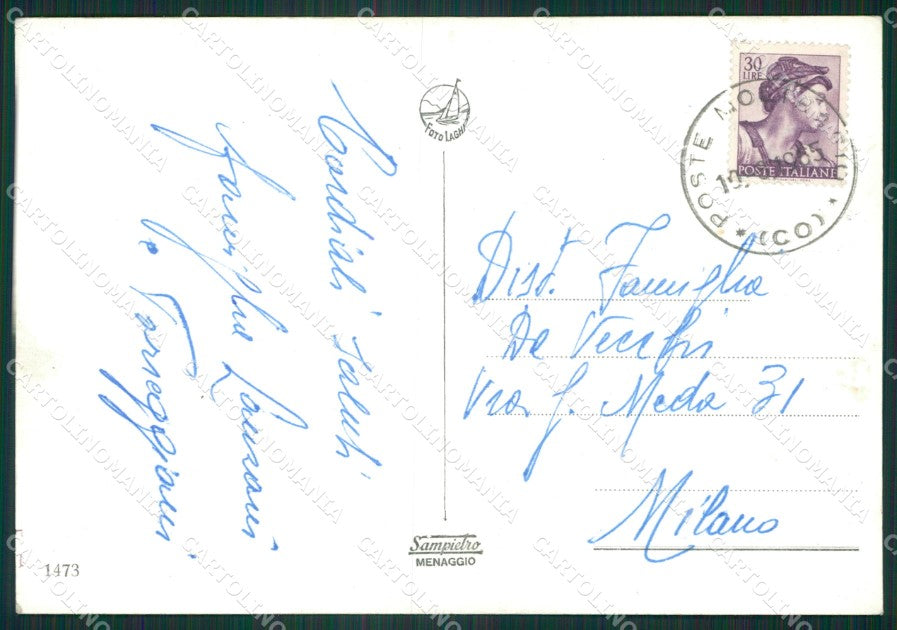 Cordiali saluti
famiglia Lanzani
e Parreggiani
FOTO LAGHI
30
LIRE
POSTE ITALIANE
POSTE MO
1965
* (CO) *
Dist. Famiglia
De Vecchi
Via G. Meda 31
Milano
Sampietro
MENAGGIO
1473
CARTOLINOMANIA